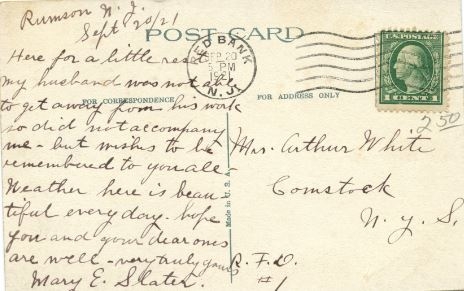 Rumson N. J.
Sept 20/21
POST CARD
Here for a little rest
my husband was not
able
to get away from his work
so did not accompany
me - but wishes to be
remembered to you all
Weather here is beau-
tiful every day. hope
you and your dear ones
are well - very truly yours
Mary E. Slater.
FOR CORRESPONDENCE
FOR ADDRESS ONLY
Made in U.S.A.
RED BANK
SEP 20
PM
1921
N.J.
U.S. POSTAGE
1 CENT 1
2 50
Mrs. Arthur White
Comstock
N. Y. S.
R. F. D.
#1